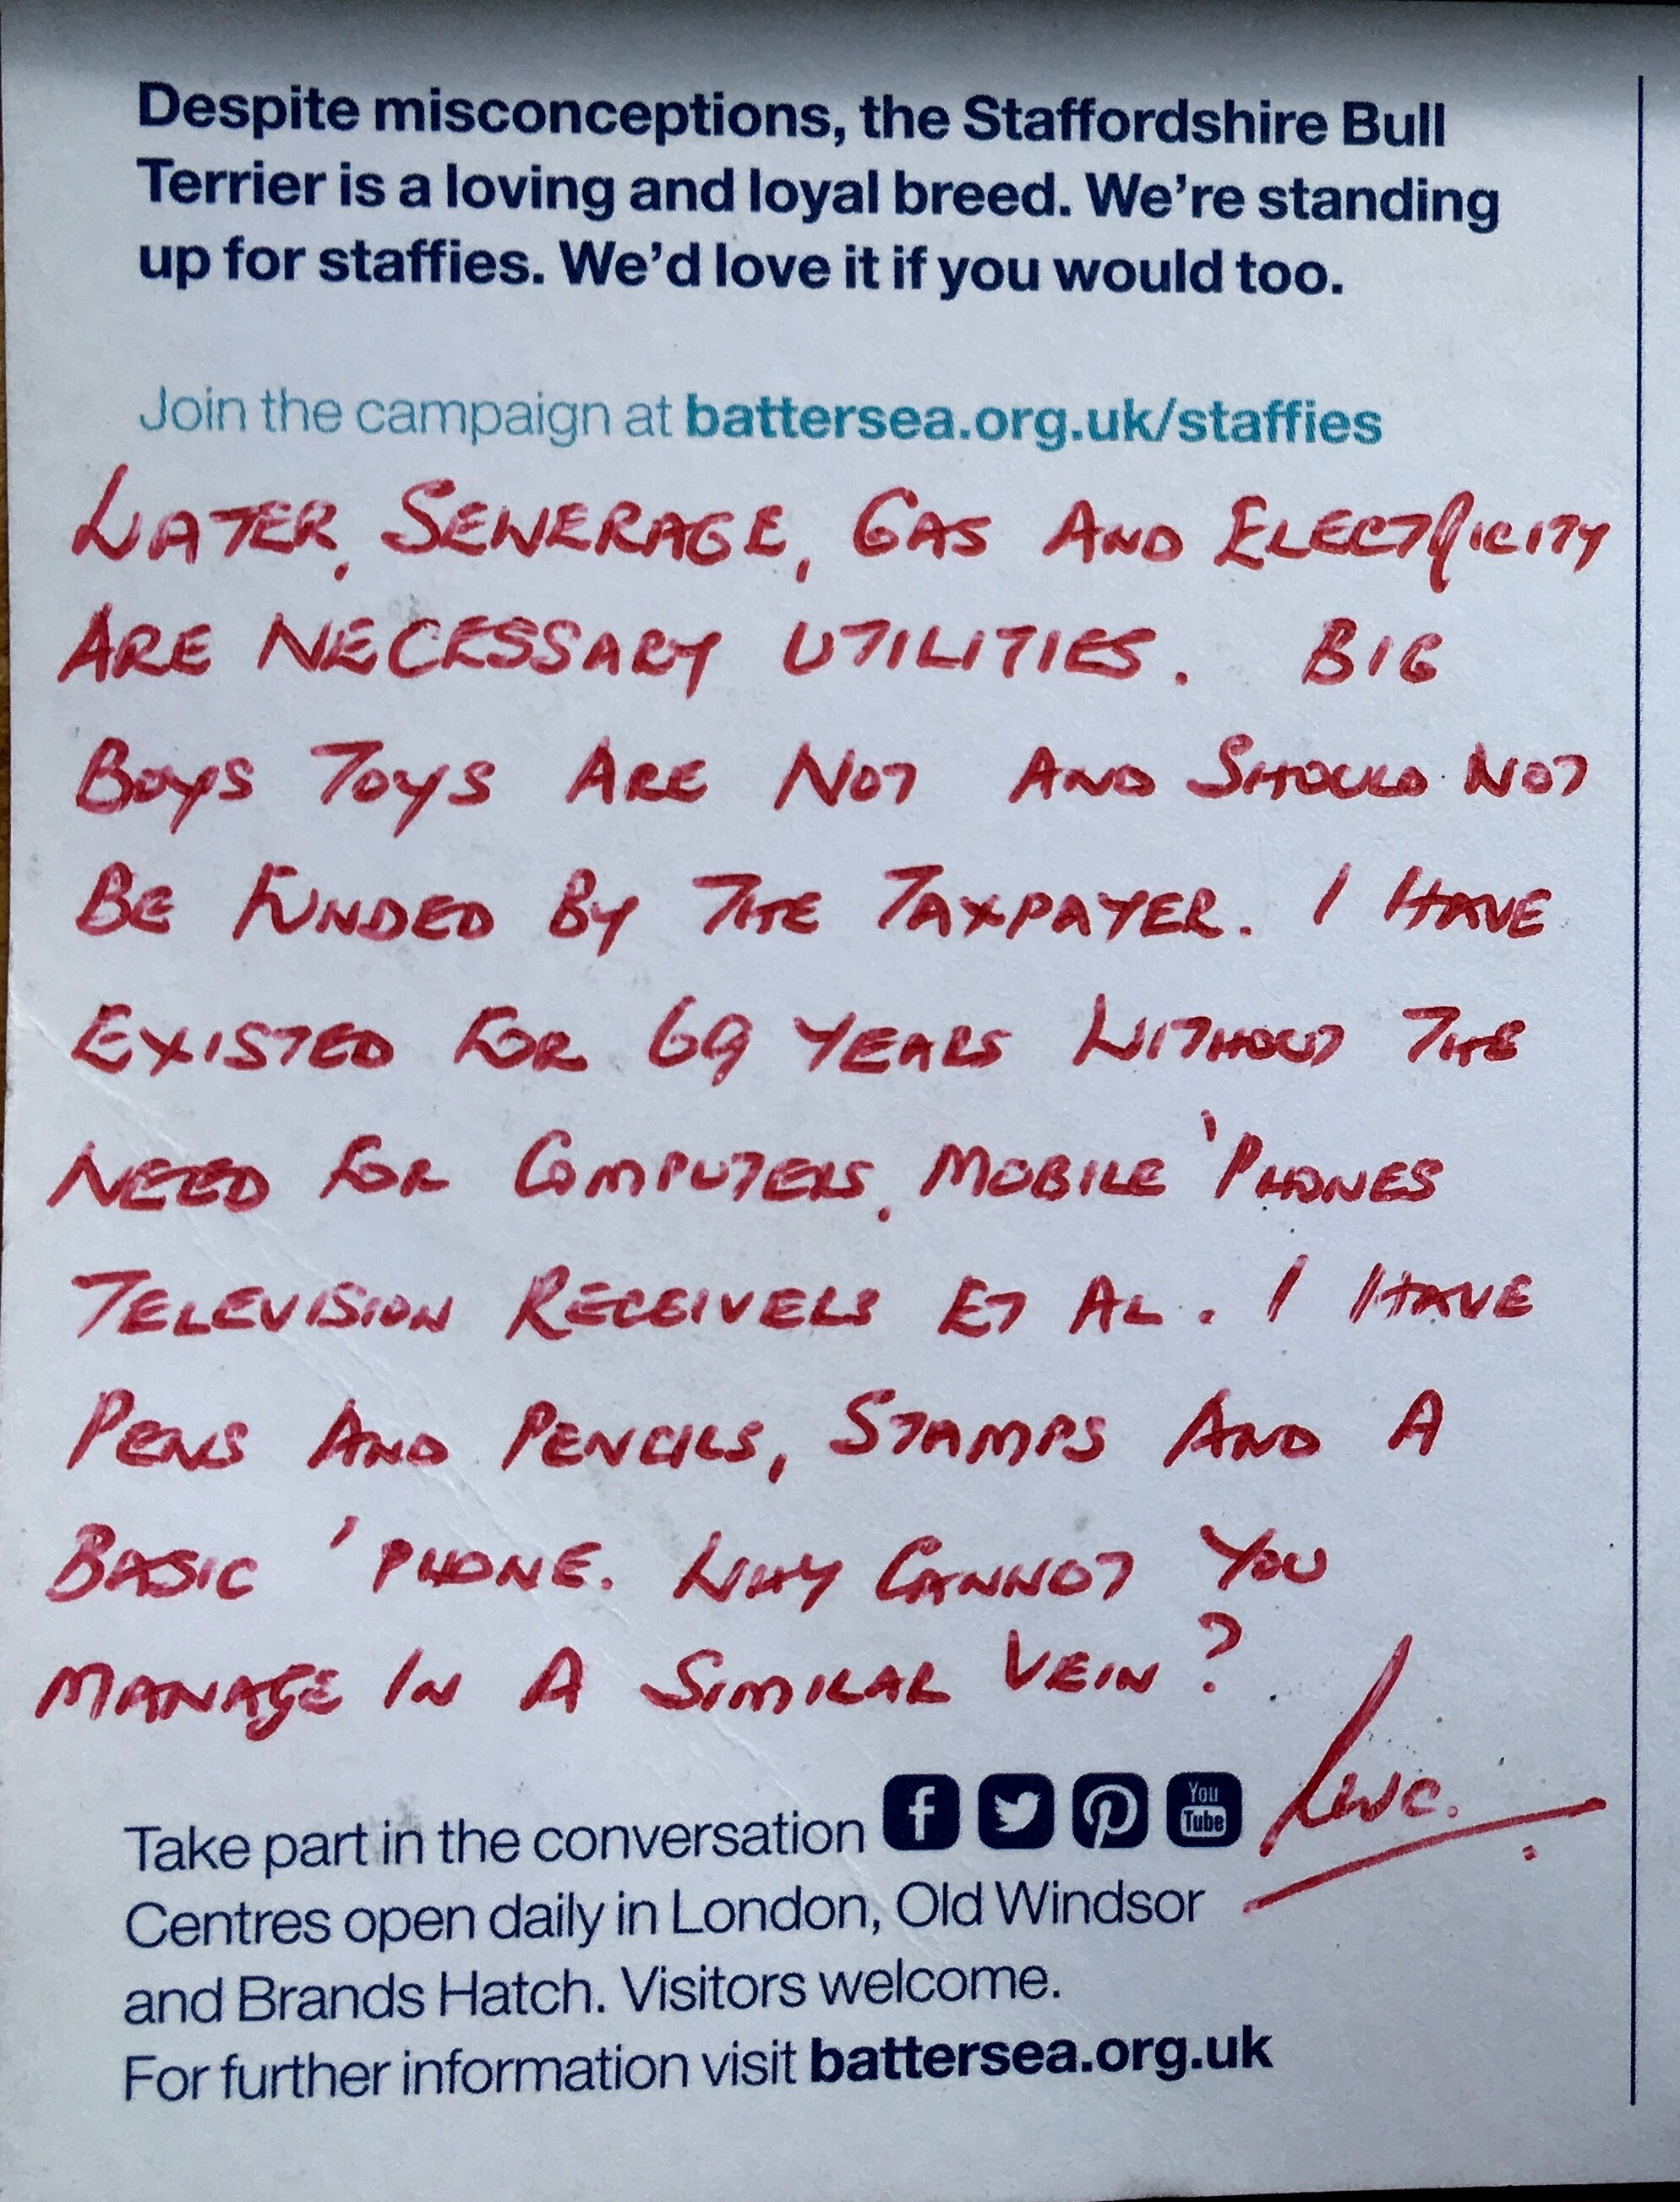 Despite misconceptions, the Staffordshire Bull
Terrier is a loving and loyal breed. We're standing
up for staffies. We'd love it if you would too.
Join the campaign at battersea.org.uk/staffies
WATER, SEWERAGE, GAS AND ELECTRICITY
ARE NECESSARY UTILITIES. BIG
BOYS TOYS ARE NOT AND SHOULD NOT
BE FUNDED BY THE TAXPAYER. I HAVE
EXISTED FOR 69 YEARS WITHOUT THE
NEED FOR COMPUTERS, MOBILE 'PHONES
TELEVISION RECEIVERS ET AL. I HAVE
PENS AND PENCILS, STAMPS AND A
BASIC 'PHONE. WHY CANNOT YOU
MANAGE IN A SIMILAR VEIN?
Take part in the conversation f You Tube
Centres open daily in London, Old Windsor
and Brands Hatch. Visitors welcome.
For further information visit battersea.org.uk